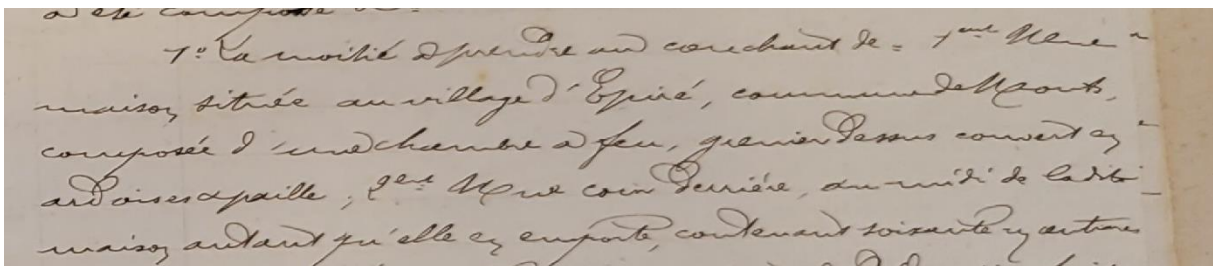 a été composé
1° La moitié à prendre au couchant de = 1ent Une
maison, située au village d'Epiré, commune de Monts,
composée d'une chambre à feu, grenier dessus couvert en
ardoises & paille ; 2ent Une coin derrière, au midi de ladite
maison autant qu'elle en emporte, contenant soixante centiares